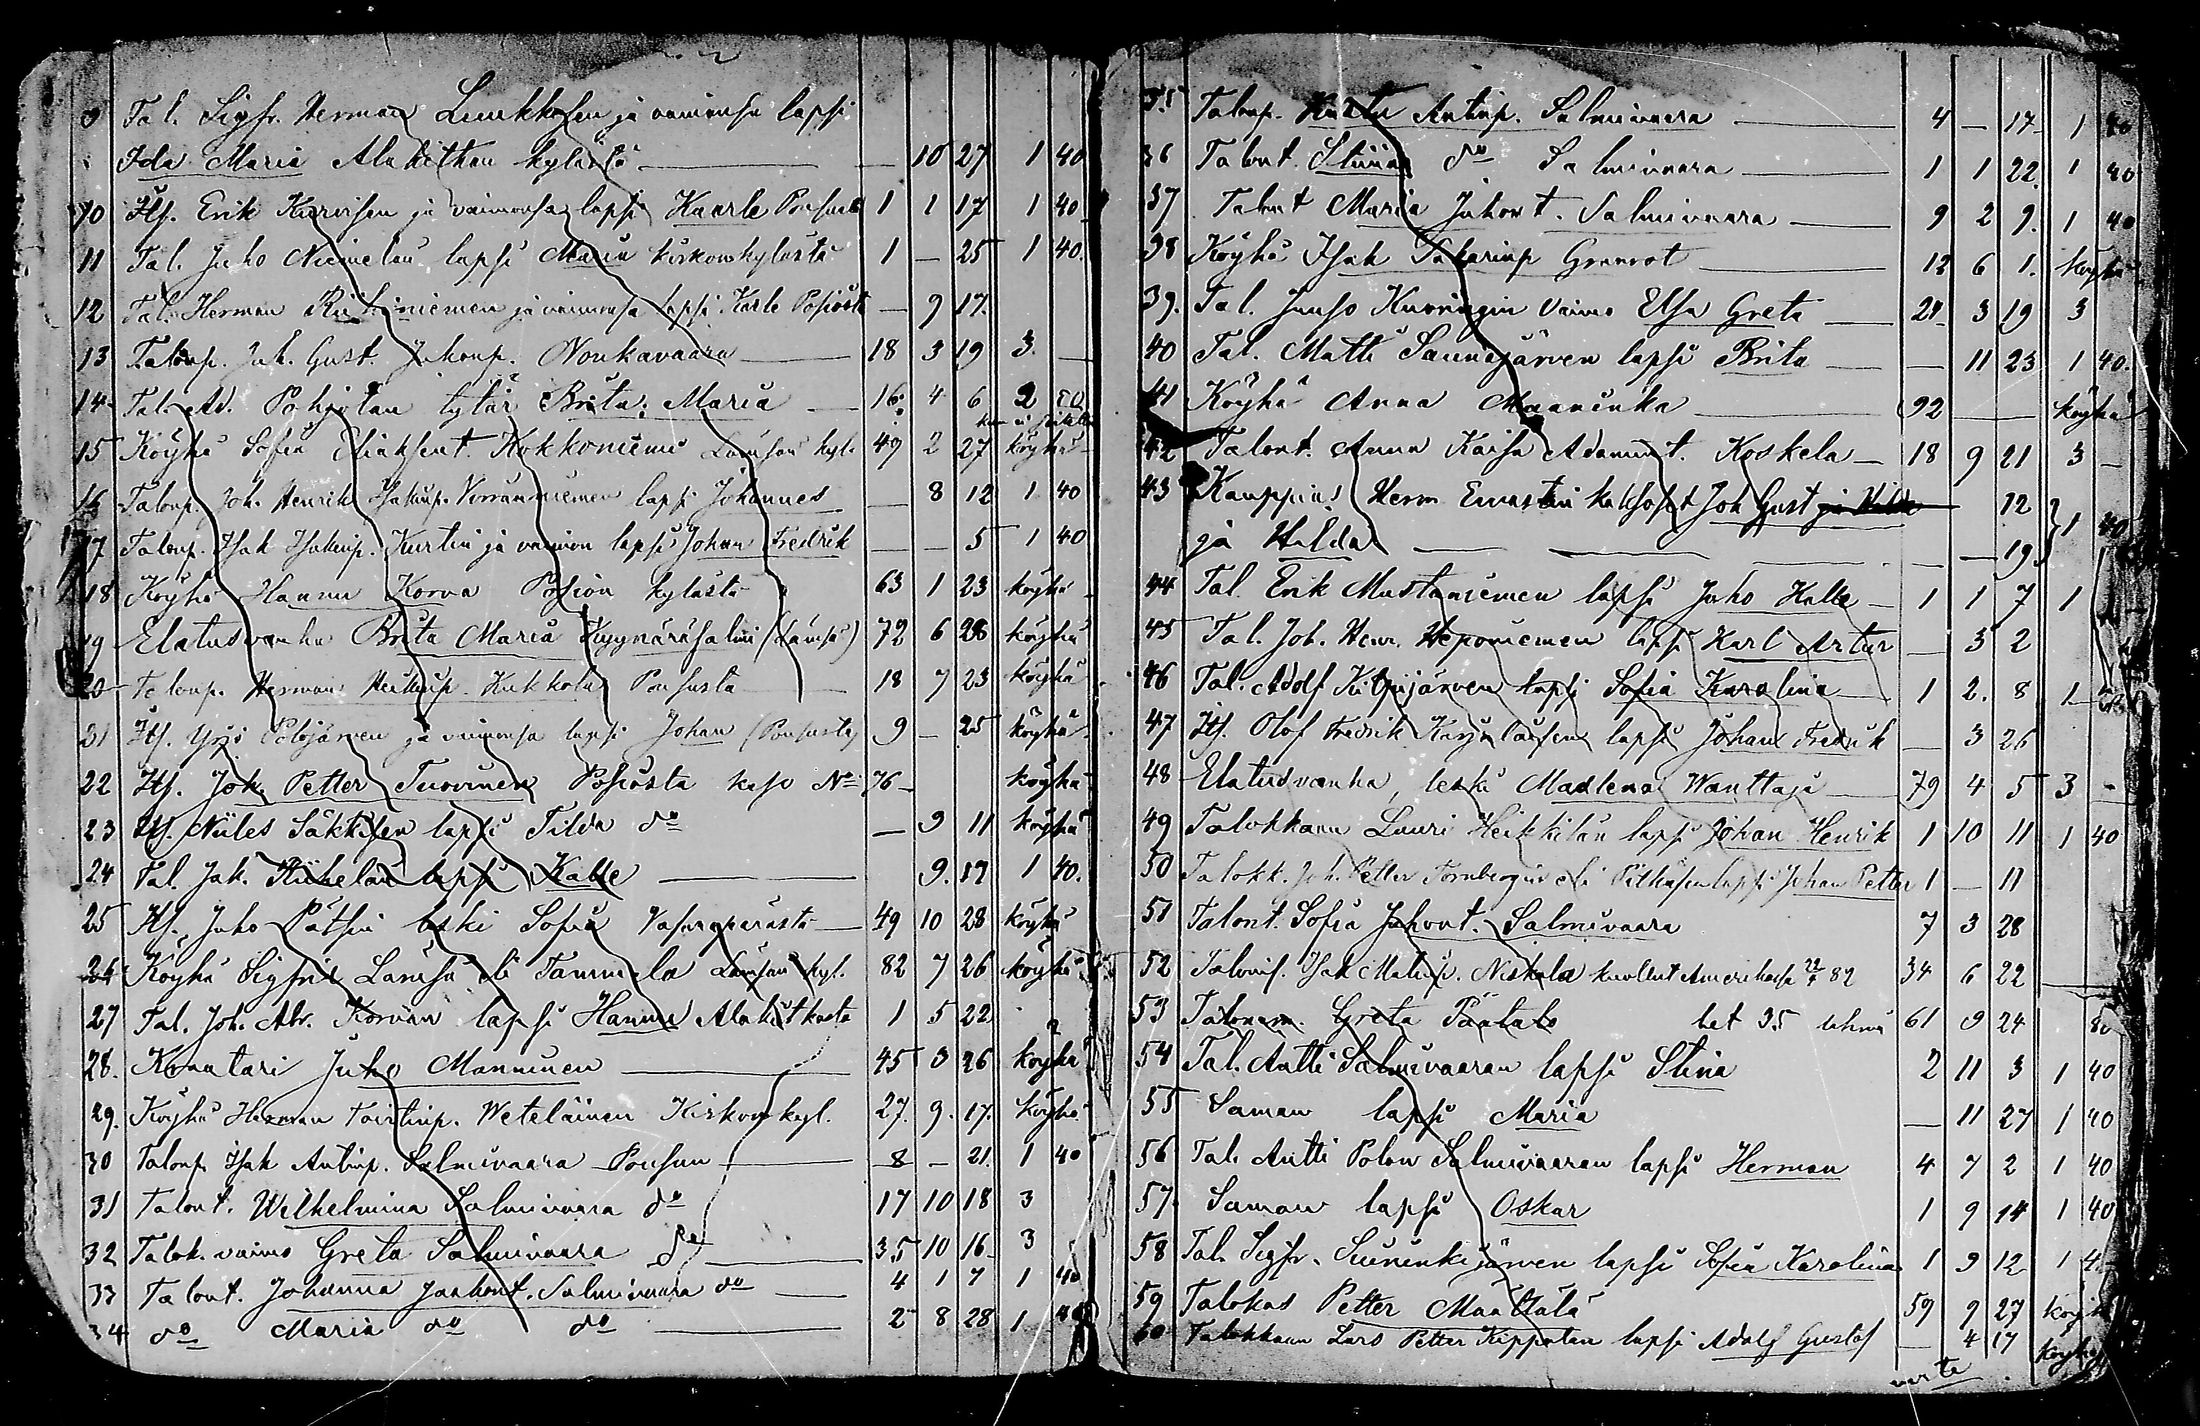 9 Tal. Sigfr. Herman Lu ja vaimonsa lapsi
Ida Maria Alakitkan kylästä — 10 27 1 40
10 Its. Erik Kurvisen ja vaimonsa lapsi Kaarle Poususta 1 1 17 1 40
11 Tal. Juho Niemelän lapsi Maria kirkonkylästä 1 — 25 1 40.
12 Tal. Herman Riihiniemen ja vaimonsa lapsi Karle Posiosta — 9 17.
13 Talonp. Joh. Gust. Juhonp. Noukavaara 18 3 19 3. —
14 Tal. Ad. Pohjolan tytär Brita Maria 16. 4 6 2
15 Köyhä Sofia Eliaksent. Kokkoniemi Lämsän kyl. 49 2 27 köyhä
16 Talonp. Joh. Henrik Isakinp. lapsi Johannes — 8 12 1 40
17 Talonp. Isak Isakinp. Kurtin ja vaimon lapsi Johan Fredrik — — 5 1 40
18 Köyhä Hannu Korva Posion kylästä 63 1 23 köyhä
19 Elatusvanha Brita Maria Kyynäräsalmi (Lämsä) 72 6 28 köyhä
20 Talonp. Herman Heikinp. Kukkola Poususta — 18 7 23 köyhä
21 Its. Yrjö Polojärven ja vaimonsa lapsi Johan (Poususta) 9 — 25 köyhä
22 Its. Joh. Petter Tuovinen Posiosta kaso No 76 — köyhä
23 Its. Niiles Säkkisen lapsi Tilda do — 9 11 köyhä
24 Tal. Jak. lapsi Kalle — 9. 17 1 40.
25 Its. Juho Pätsin leski Sofia Vasaraperästä — 49 10 28 köyhä
26 Köyhä Sigfrid Lämsä eli Tammela Lämsän kyl. 82 7 26 köyhä
27 Tal. Joh. Abr. Korvan lapsi Hanna Alakitkasta 1 5 22
28. Kanttari Juho Manninen — 45 3 26 köyhä
29. Köyhä Herman Weteläinen Kirkonkyl. 27. 9. 17. köyhä
30 Talonp. Isak Antinp. Salmivaara Pousun — 8 — 21. 1 40
31 Talont. Wilhelmina Salmivaara do 17 10 18 3
32 Talok. vaimo Greta Salmivaara do — 35 10 16 3
33 Talont. Johanna Salmivaara do — 4 1 7 1 40
34 do Maria do do — 2 8 28 1 40
35 Talonp. Antinp. Salmivaara — 4 — 17 1 40
36 Talont. Stiina do Salmivaara — 1 1 22. 1 40
37 Talont Maria Juhont. Salmivaara — 9 2 9. 1 40
38 Köyhä Isak Sakarinp Granrot — 12 6 1. köyhä
39. Tal. Juuso Kuoringin Vaimo Elsa Greta — 24 3 19 3
40 Tal. Matti Saunajärven lapsi Brita — — 11 23 1 40.
41 Köyhä Anna Maaninka — 92 — — köyhä
42 Talont. Anna Kaisa Adamint. Koskela — 18 9 21 3 —
43 Kauppias Herm kaksoset Joh Gust ja Hilda 12
ja Hilda — — — 19 } 1 40
44 Tal. Erik Mustaniemen lapsi Juho Kalle — 1 1 7 1
45 Tal. Joh. Henr. Heponiemen lapsi Karl Artur — 3 2
46 Tal. Adolf lapsi Sofia Karolina 1 2. 8 1
47 Its. Olof Fredrik Karjalaisen lapsi Johan Fredrik — 3 26
48 Elatusvanha, leski Madlena Wanttaja — 79 4 5 3 —
49 Talokkaan Lauri Heikkilän lapsi Johan Henrik 1 10 11 1 40
50 Talokk. Joh. Petter Tornbergin eli Pitkäsen lapsi Johan Petter 1 — 11
51 Talont. Sofia Juhont. Salmivaara 7 3 28
52 Isak Matinp. Niskala kuollut Amerikassa 82 34 6 22
53 Greta Päätalo 61 9 24 80
54 Tal. Antti Salmivaaran lapsi Stina 2 11 3 1 40
55 Saman lapsi Maria — 11 27 1 40
56 Tal. Antti Polon Salmivaaran lapsi Herman 4 7 2 1 40
57 Saman lapsi Oskar 1 9 14 1 40
58 Tal. Sigfr. Suininkijärven lapsi Sofia Karolina 1 9 12 1 4
59 Talokas Petter Määttälä 59 9 27 köyhä
60 Talokkaan Lars Petter Kuppolan lapsi Adolf Gustaf — 4 17 köyhä